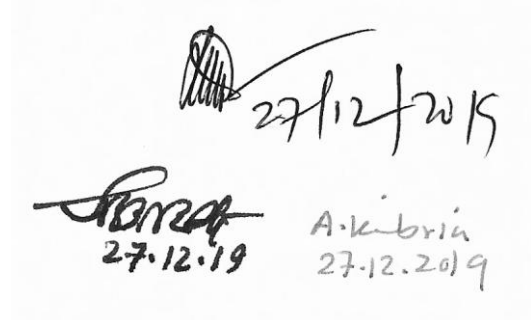 27/12/2019
27.12.19
A.kibria
27.12.2019